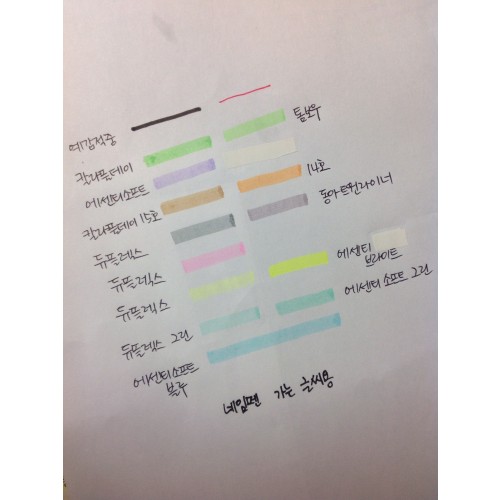 예감적중
톰보우
칼라풀데이
에센티소프트
14호
칼라풀데이 15호
동아트윈라이너
듀플렉스
듀플렉스
에센티
브라이트
듀플렉스
에센티소프트 그린
듀플렉스 그린
에센티소프트
블루
네임펜 가는 글씨용